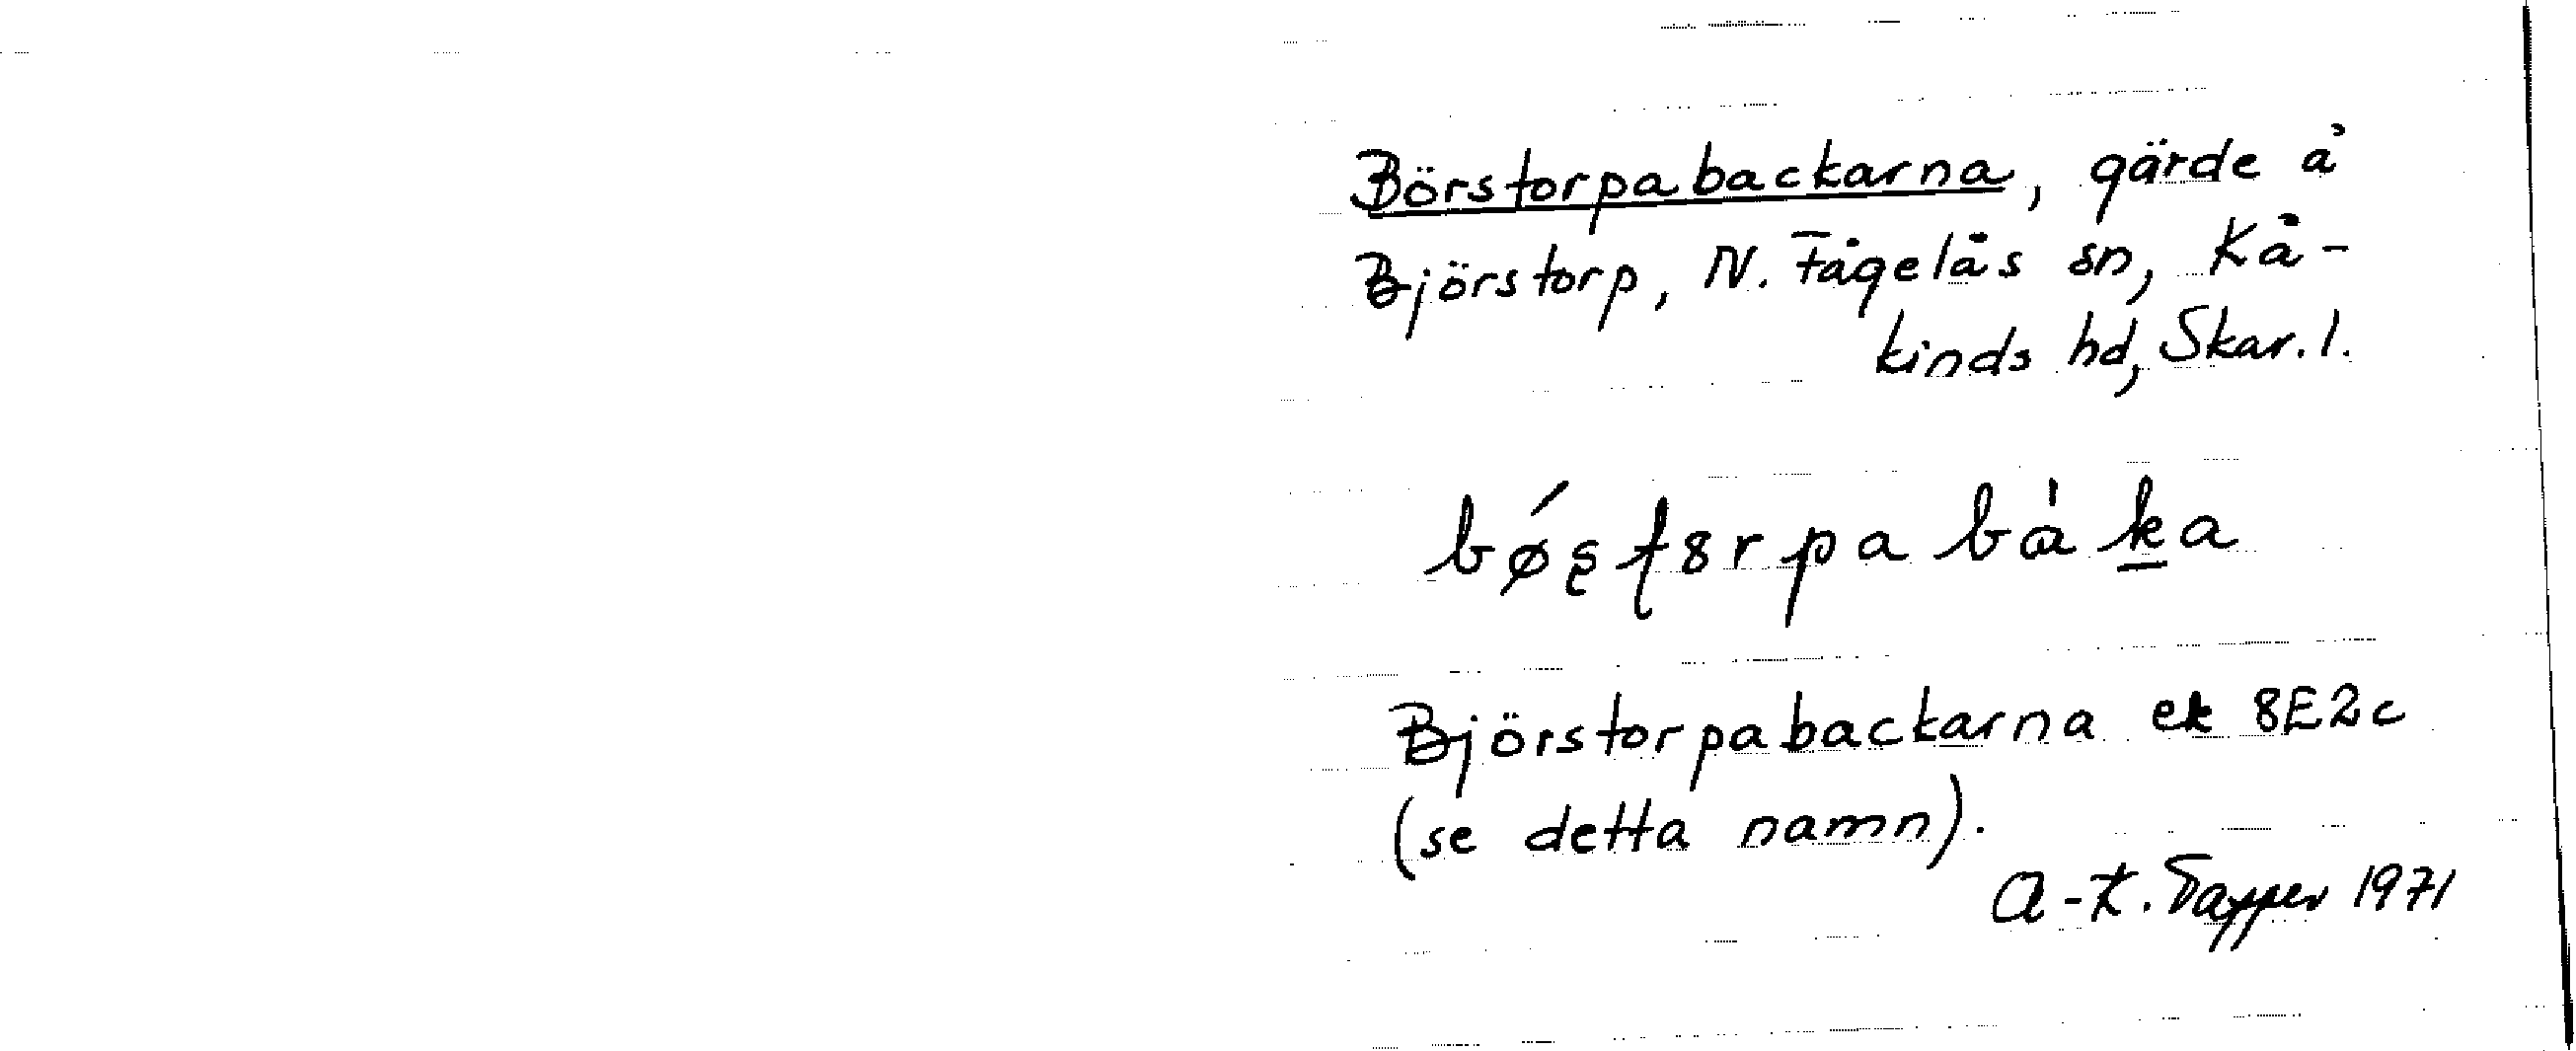 Börstorpabackarna, gärde å
Björstorp, N. Fågelås sn, Kå-
kinds hd, Skar. l.
bǿʂʈ8rpabàk̲a
Björstorpabackarna ek 8E2c
(se detta namn).
A-K. Tapper 1971